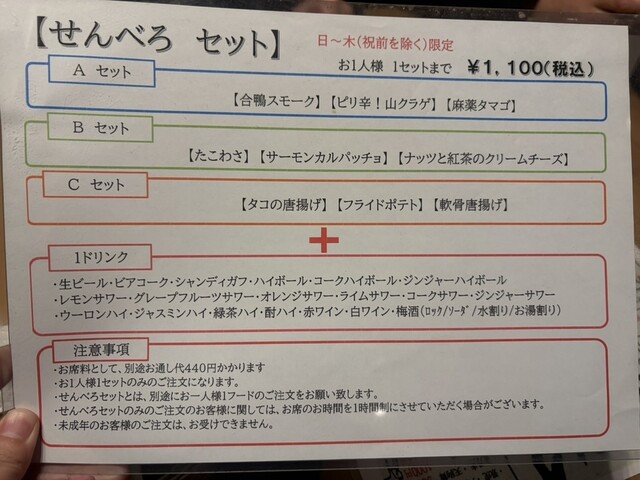 【せんべろ セット】
日～木（祝前を除く）限定
お1人様 1セットまで ￥1，100（税込）
A セット
【合鴨スモーク】【ピリ辛！山クラゲ】【麻薬タマゴ】
B セット
【たこわさ】【サーモンカルパッチョ】【ナッツと紅茶のクリームチーズ】
C セット
【タコの唐揚げ】【フライドポテト】【軟骨唐揚げ】
+
1ドリンク
・生ビール・ビアコーク・シャンディガフ・ハイボール・コークハイボール・ジンジャーハイボール
・レモンサワー・グレープフルーツサワー・オレンジサワー・ライムサワー・コークサワー・ジンジャーサワー
・ウーロンハイ・ジャスミンハイ・緑茶ハイ・酎ハイ・赤ワイン・白ワイン・梅酒（ﾛｯｸ/ｿｰﾀﾞ/水割り/お湯割り）
注意事項
・お席料として、別途お通し代440円かかります
・お1人様1セットのみのご注文になります。
・せんべろセットとは、別途にお一人様1フードのご注文をお願い致します。
・せんべろセットのみのご注文のお客様に関しては、お席のお時間を1時間制にさせていただく場合がございます。
・未成年のお客様のご注文は、お受けできません。